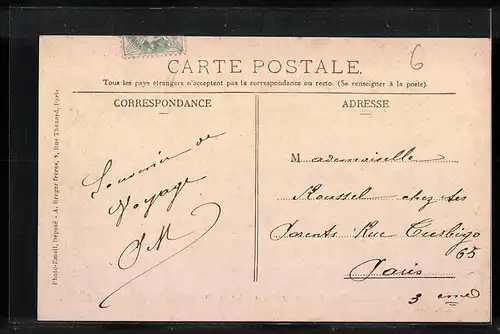 6
CARTE POSTALE.
Tous les pays étrangers n'acceptent pas la correspondance au recto. (Se renseigner à la poste).
CORRESPONDANCE
Souvenir de
Voyage
JM
ADRESSE
Mademoiselle
Roussel chez ses
Parents Rue Turbigo
65
Paris
3 eme
Photo-Émail, Déposé - A. Breger frères, 9, Rue Thénard, Paris.